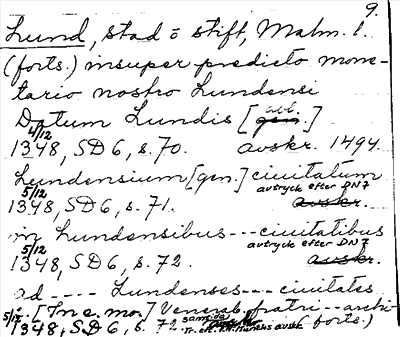 9.
Lund, stad o stift, Malm. l.
(forts.) insuper predicto mone-
tario nostro Lundensi
Datum Lundis [gen. abl.]
4/12
1348, SD 6, s. 70. avskr. 1494.
Lundensium [gen.] ciuitatum
5/12 avtryck efter DN 7
1348, SD 6, s. 71. avskr.
in Lundensibus --- ciuitatibus
5/12 avtryck efter DN 7
1348, SD 6, s. 72. avskr.
ad ---- Lundenses --- ciuitates
5/12. [Jn e. mo.] Venerab. fratri -- archi-
1348, SD 6, s. 72 samtida avskr. (forts.)